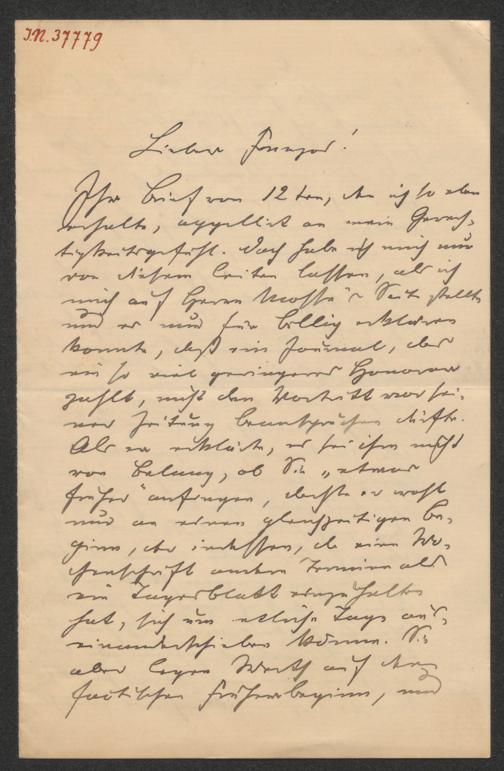 I.N. 37779
Lieber Franzos!
Ihr Brief vom 12ten, den ich so eben
erhalte, appellirt an mein Gerech-
tigkeitsgefühl. Doch habe ich mich nur
von diesem leiten lassen, als ich
mich auf Herrn Mosse's Seite stellte
und es nur für billig erklären
konnte, daß ein Journal, das
ein so viel geringeres Honorar
zahlt, nicht den Vortritt vor sei-
ner Zeitung beanspruchen dürfte.
Als er erklärte, es sei ihm nicht
von Belang, ob Sie „etwas
früher" anfingen, dachte er wohl
nur an einen gleichzeitigen Be-
ginn, der indessen, da eine Wo-
chenschrift andere Termine als
ein Tagesblatt einzuhalten
hat, sich um etliche Tage aus-
einanderschieben könne. Sie
aber legen Werth auf den
factischen Früherbeginn, und